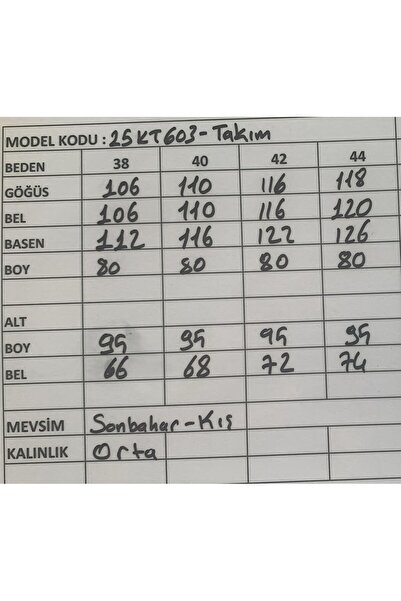 MODEL KODU : 25KT603-Takım
BEDEN 38 40 42 44
GÖĞÜS 106 110 116 118
BEL 106 110 116 120
BASEN 112 116 122 126
BOY 80 80 80 80
ALT
BOY 95 95 95 95
BEL 66 68 72 74
MEVSİM Sonbahar-Kış
KALINLIK Orta